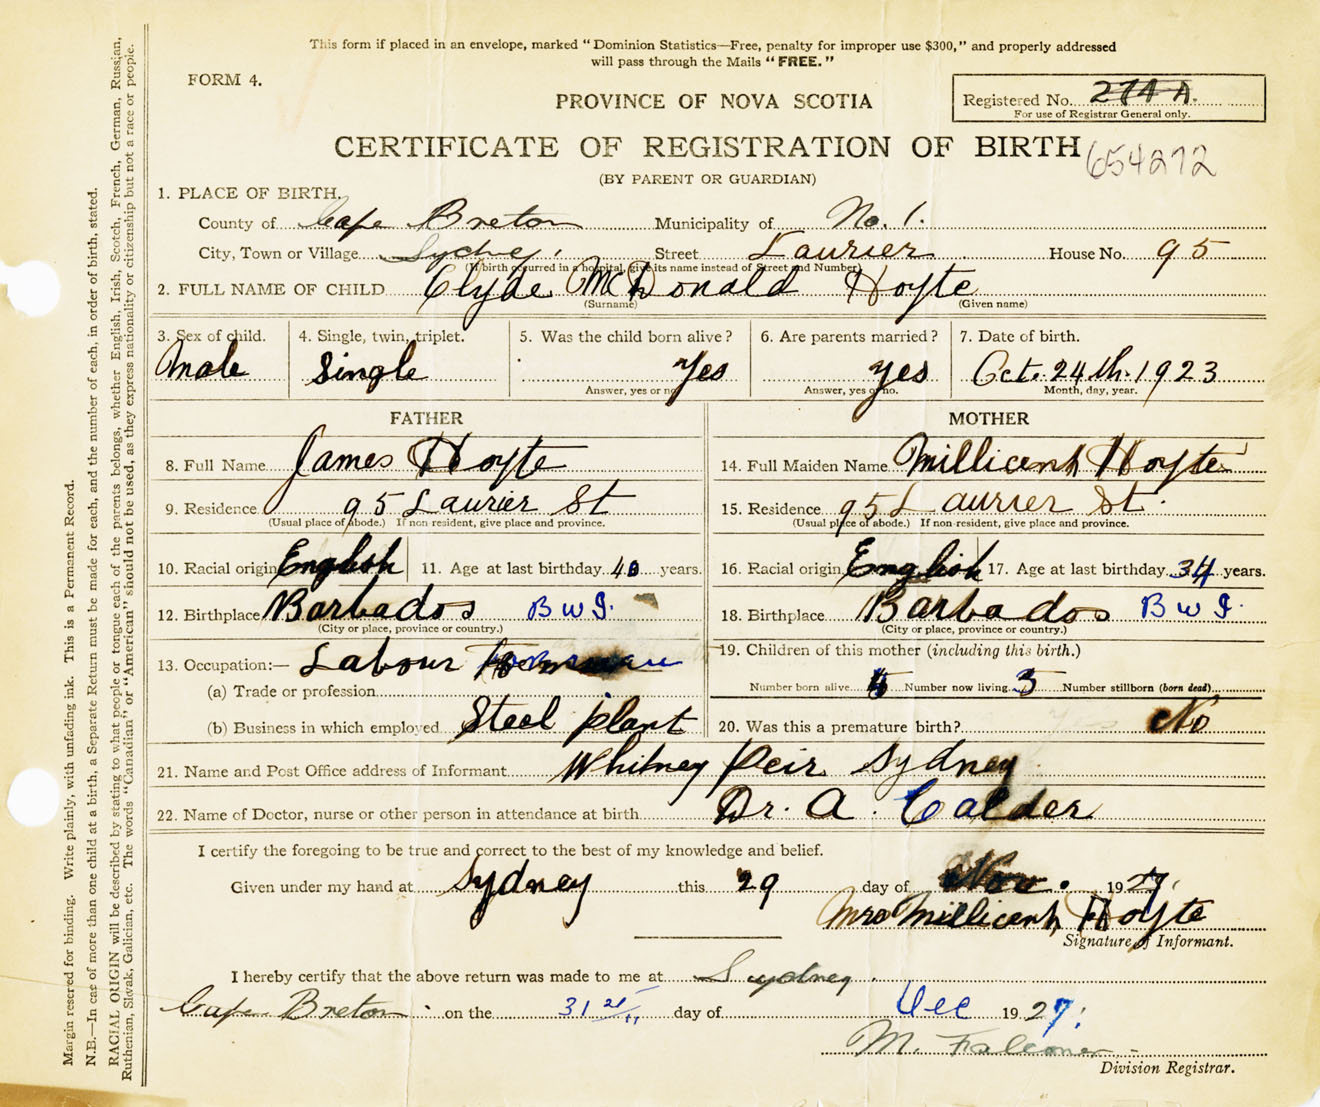 This form if placed in an envelope, marked "Dominion Statistics—Free, penalty for improper use $300," and properly addressed
will pass through the Mails "FREE."
FORM 4.
PROVINCE OF NOVA SCOTIA
Registered No. 274 A.
For use of Registrar General only.
CERTIFICATE OF REGISTRATION OF BIRTH
654272
(BY PARENT OR GUARDIAN)
1. PLACE OF BIRTH.
County of Cape Breton Municipality of No. 1.
City, Town or Village Sydney. Street Laurier House No. 95
(If birth occurred in a hospital, give its name instead of Street and Number)
2. FULL NAME OF CHILD Clyde McDonald Hoyte
(Surname) (Given name)
3. Sex of child. 4. Single, twin, triplet. 5. Was the child born alive? 6. Are parents married? 7. Date of birth.
Male Single Yes Yes Oct. 24th. 1923
Answer, yes or no. Answer, yes or no. Month, day, year.
FATHER MOTHER
8. Full Name James Hoyte 14. Full Maiden Name Millicent Hoyte
9. Residence 95 Laurier St 15. Residence 95 Laurier St.
(Usual place of abode.) If non resident, give place and province. (Usual place of abode.) If non-resident, give place and province.
10. Racial origin English 11. Age at last birthday 40 years. 16. Racial origin English 17. Age at last birthday 34 years.
12. Birthplace Barbados B W I. 18. Birthplace Barbados B W I.
(City or place, province or country.) (City or place, province or country.)
13. Occupation:— Labour 19. Children of this mother (including this birth.)
(a) Trade or profession Number born alive Number now living Number stillborn (born dead)
(b) Business in which employed Steel plant 20. Was this a premature birth? No
21. Name and Post Office address of Informant Whitney Peir Sydney
22. Name of Doctor, nurse or other person in attendance at birth Dr. A. Calder
I certify the foregoing to be true and correct to the best of my knowledge and belief.
Given under my hand at Sydney this 29 day of Nov. 1927.
Mrs Millicent Hoyte
Signature of Informant.
I hereby certify that the above return was made to me at Sydney.
Cape Breton on the 31 day of Dec 1927.
M. Falconer
Division Registrar.
Margin reserved for binding. Write plainly, with unfading ink. This is a Permanent Record.
N.B.—In case of more than one child at a birth, a Separate Return must be made for each, and the number of each, in order of birth, stated.
RACIAL ORIGIN will be described by stating to what people or tongue each of the parents belongs, whether English, Irish, Scotch, French, German, Russian,
Ruthenian, Slovak, Galician, etc. The words "Canadian" or "American" should not be used, as they express nationality or citizenship but not a race or people.